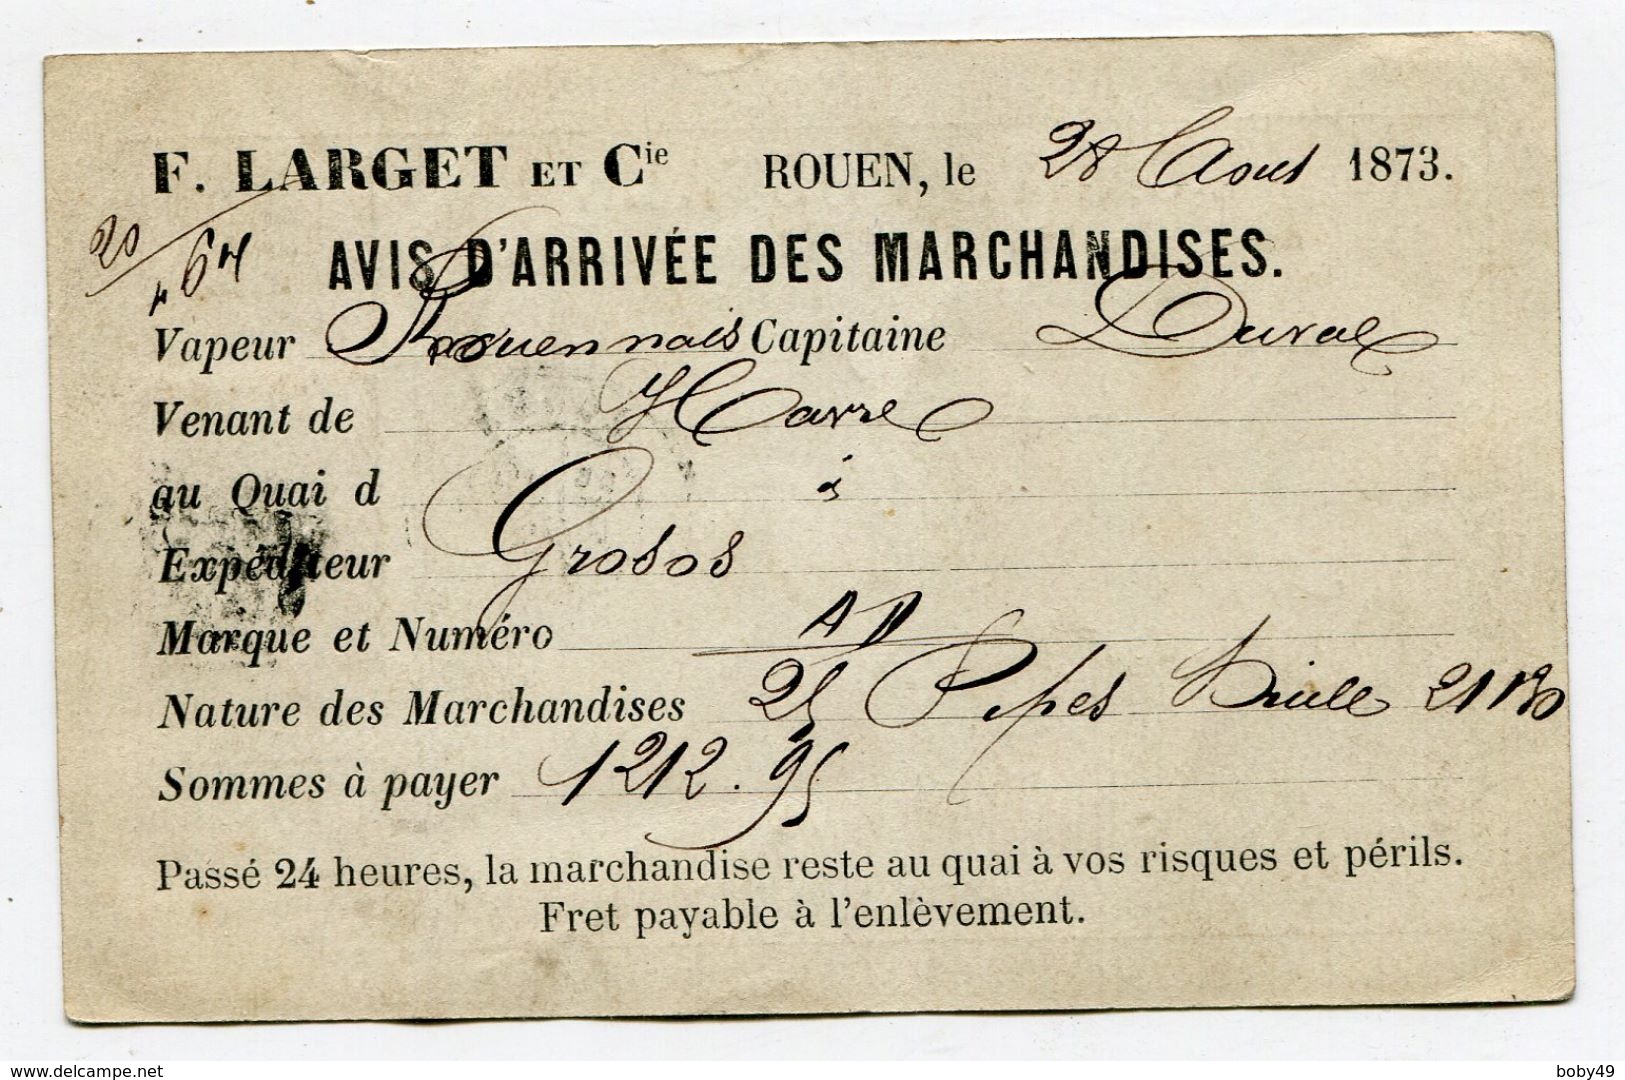 F. LARGET ET Cie ROUEN, le 28 Aout 1873.
20/64
AVIS D'ARRIVÉE DES MARCHANDISES.
Vapeur Rouennais Capitaine Duval
Venant de Havre
au Quai d
Expéditeur Grosos
Marque et Numéro AD
Nature des Marchandises 25 Pipes huile
Sommes à payer 1212.95
Passé 24 heures, la marchandise reste au quai à vos risques et périls.
Fret payable à l'enlèvement.
delcampe.net
boby49